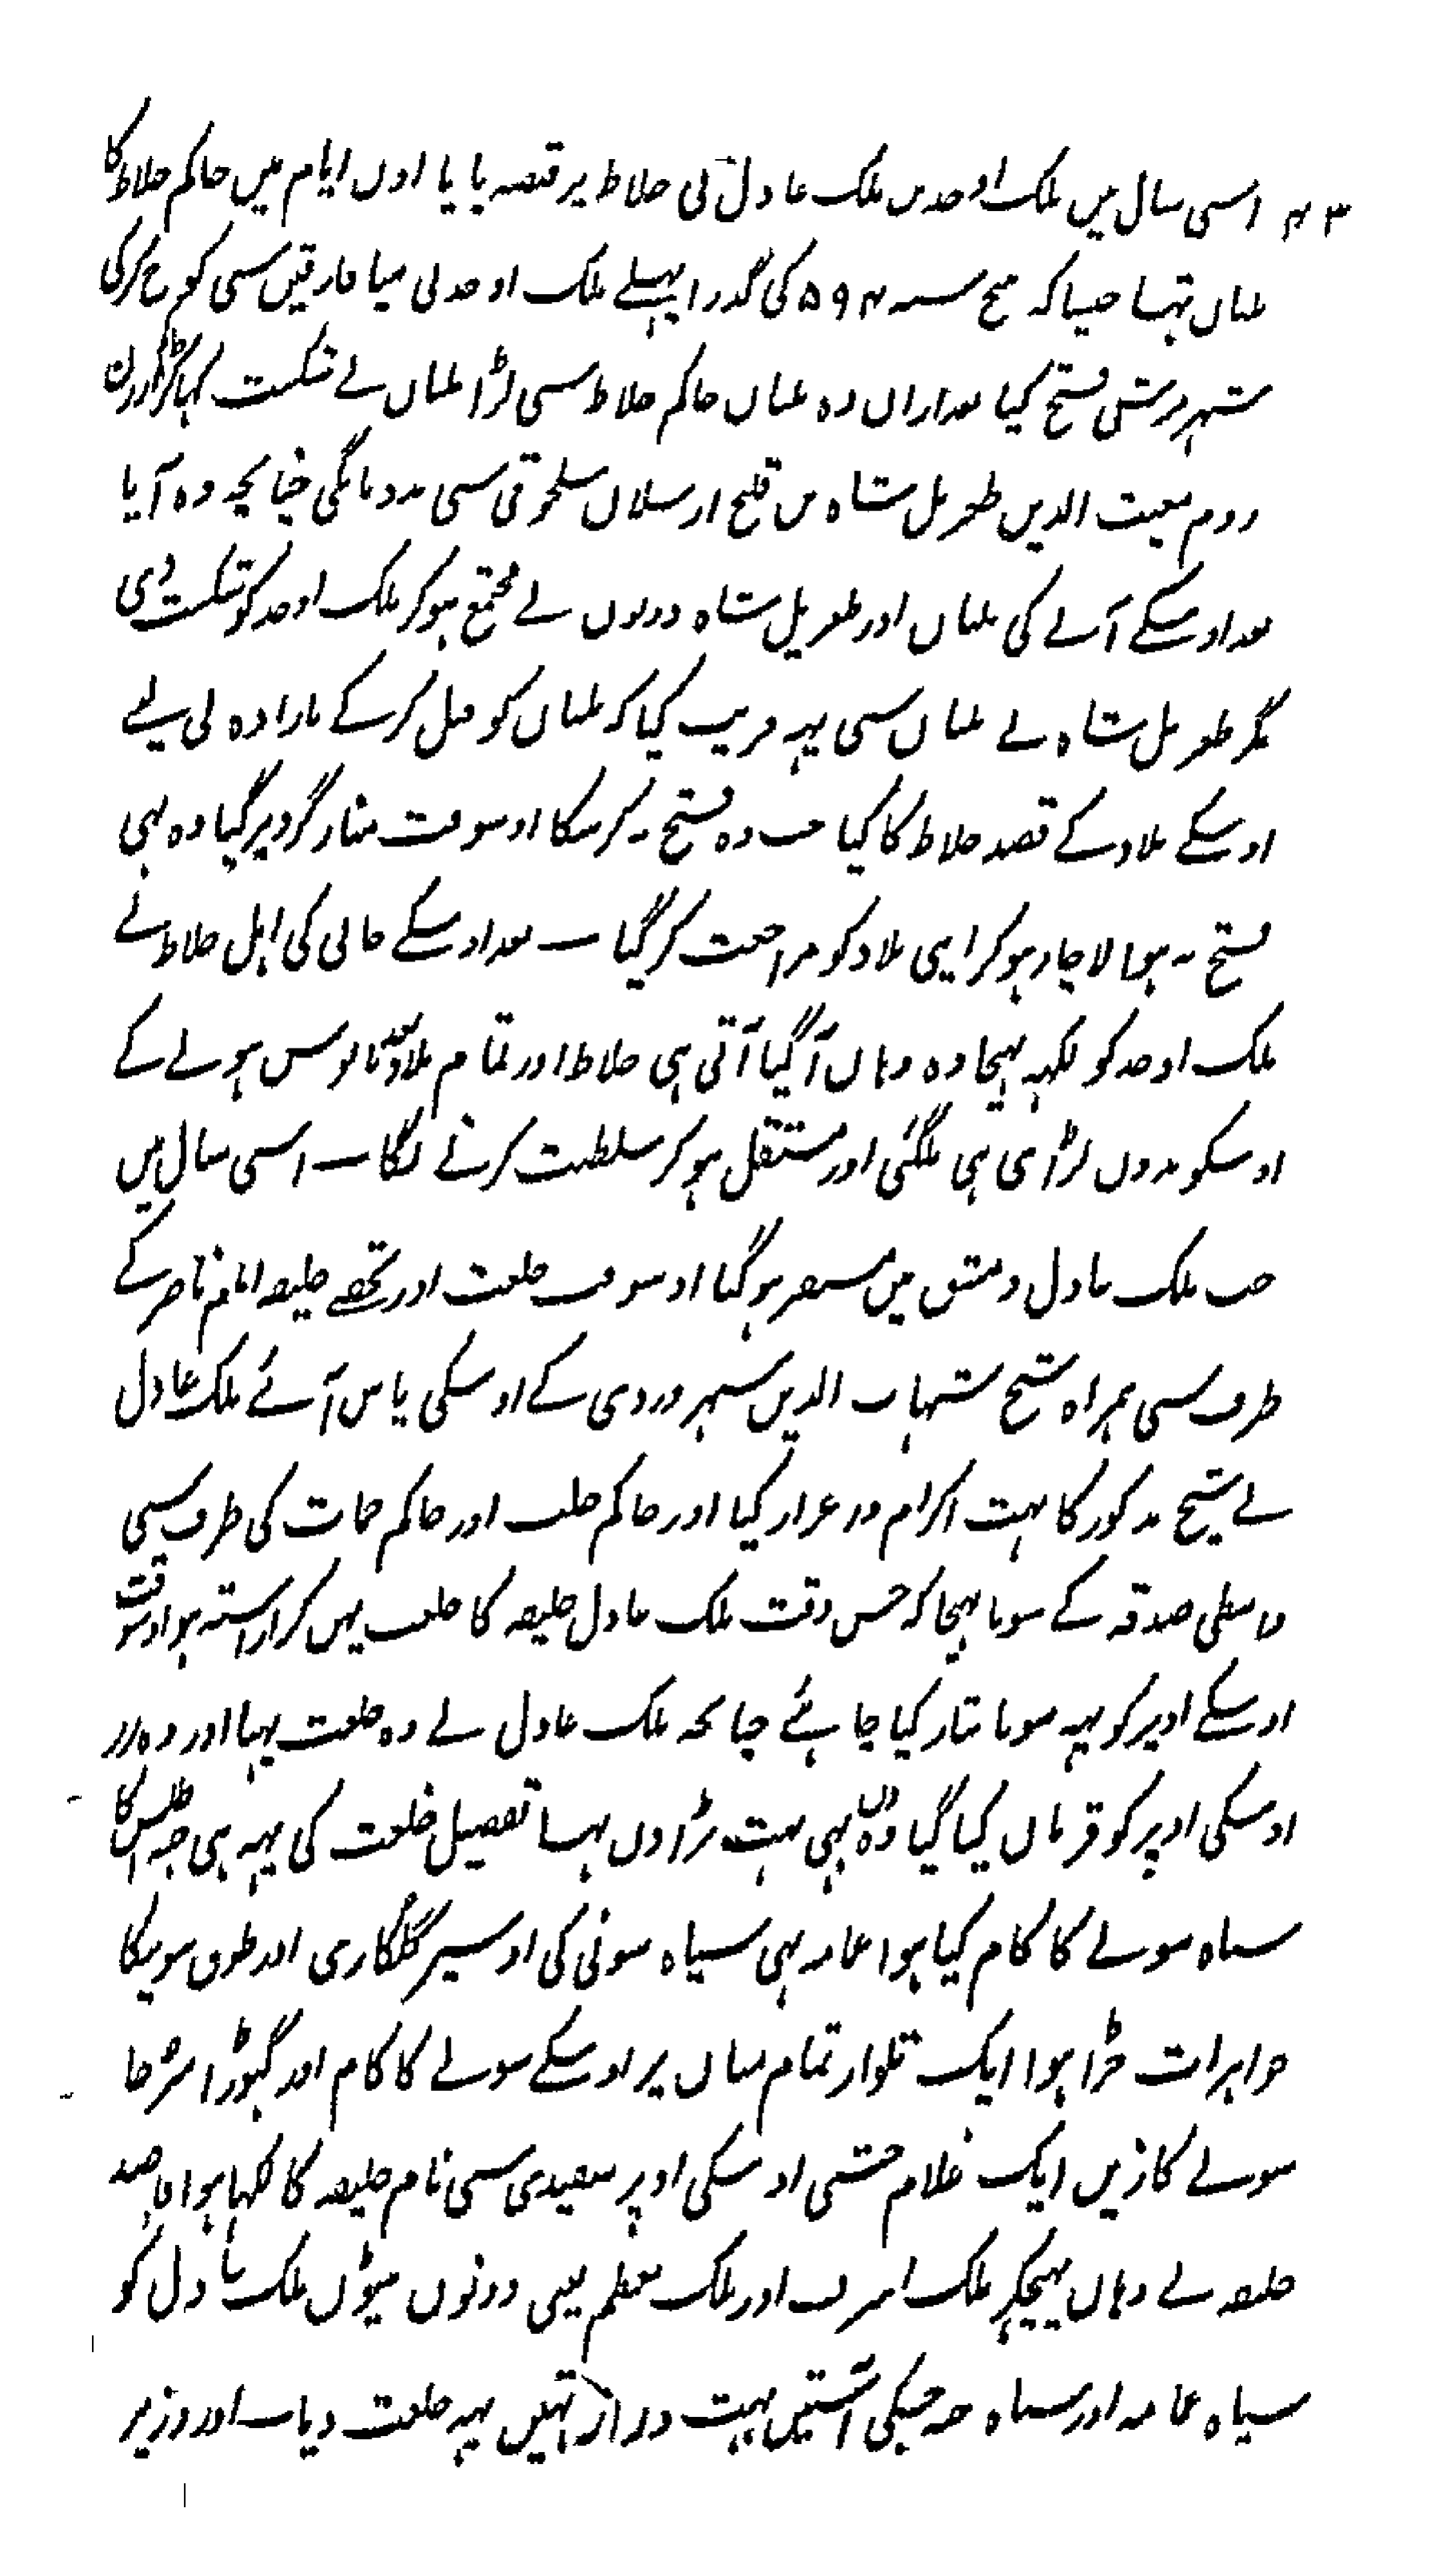 ۴۳ اسی سال میں ملک اوحد بن ملک عادل نی خلاط پر قبضہ پایا اون ایام میں حاکم خلاط کا
بلبان تہا جیسا کہ بیچ سنہ ۵۹۴ کی گذرا پہلے ملک اوحد نی میافارقین سی کوچ کرکی
شہر فتح کیا بعد ازاں وہ بلبان حاکم خلاط سی لڑا بلبان نے شکست کہا کر
روم مغیث الدین طغریل شاہ بن قلج ارسلان سلجوقی سی مدد مانگی چنانچہ وہ آیا
بعد اوسکے آنے کی بلبان اور طغریل شاہ دونوں نے مجتمع ہوکر ملک اوحد کو شکست دی
مگر طغریل شاہ نے بلبان سی یہہ فریب کیا کہ بلبان کو قتل کرکے مارا وہ لی لیے
اوسکے بلاد کے قصد خلاط کا کیا جب وہ فتح نہ کرسکا اوسوقت منازگرد پر گیا وہ بہی
فتح نہ ہوا لاچار ہوکر اپنی بلاد کو مراجعت کرگیا ـ بعد اوسکے جانی کی اہل خلاط نے
ملک اوحد کو لکہہ بہیجا وہ وہاں آگیا آتی ہی خلاط اور تمام بلاد بعد مایوس ہونے کے
اوسکو بدون لڑای ہی ملگئی اور مستقل ہوکر سلطنت کرنے لگا ـ اسی سال میں
جب ملک عادل دمشق میں مستقر ہوگیا اوسوقت خلعت اور تحفے خلیفہ امام ناصر کے
طرف سی ہمراہ شیخ شہاب الدین سہروردی کے اوسکی پاس آئے ملک عادل
نے شیخ مذکور کا بہت اکرام و اعزاز کیا اور حاکم حلب اور حاکم حمات کی طرف سی
واسطی صدقہ کے سونا بہیجا کہ جس وقت ملک عادل خلیفہ کا خلعت پہن کر اراستہ ہو اوسوقت
اوسکے اوپر کو یہہ سونا نثار کیا جاہئے چنانچہ ملک عادل نے وہ خلعت پہنا اور وہ زر
اوسکی اوپر کو قربان کیا گیا وہ دن بہی بہت بڑا دن تہا تفصیل خلعت کی یہہ ہی جبہ اطلس کا
سیاہ سونے کا کام کیا ہوا عمامہ بہی سیاہ سونی کی اوسپر گلکاری اور طوق سونیکا
جواہرات جڑا ہوا ایک تلوار تمام میان پر اوسکے سونے کا کام اور گہوڑا
سونے کا زین ایک غلام حبشی اوسکی اوپر سفیدی سی نام خلیفہ کا لکہا ہوا قاصد
خلیفہ نے وہاں پہنچکر ملک اشرف اور ملک معظم عیسی دونوں بیٹوں ملک عادل کو
سیاہ عمامہ اور سیاہ جبہ جسکی آستین بہت دراز تہیں یہہ خلعت دیا ـ اور وزیر